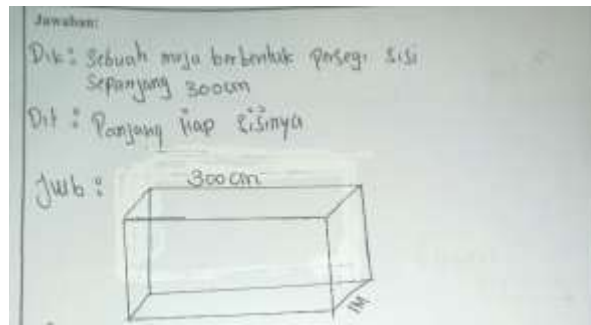 Jawaban:
Dik: Sebuah meja berbentuk persegi sisi
Sepanjang 300cm
Dit : Panjang tiap sisinya
Jwb :
300 cm
1M